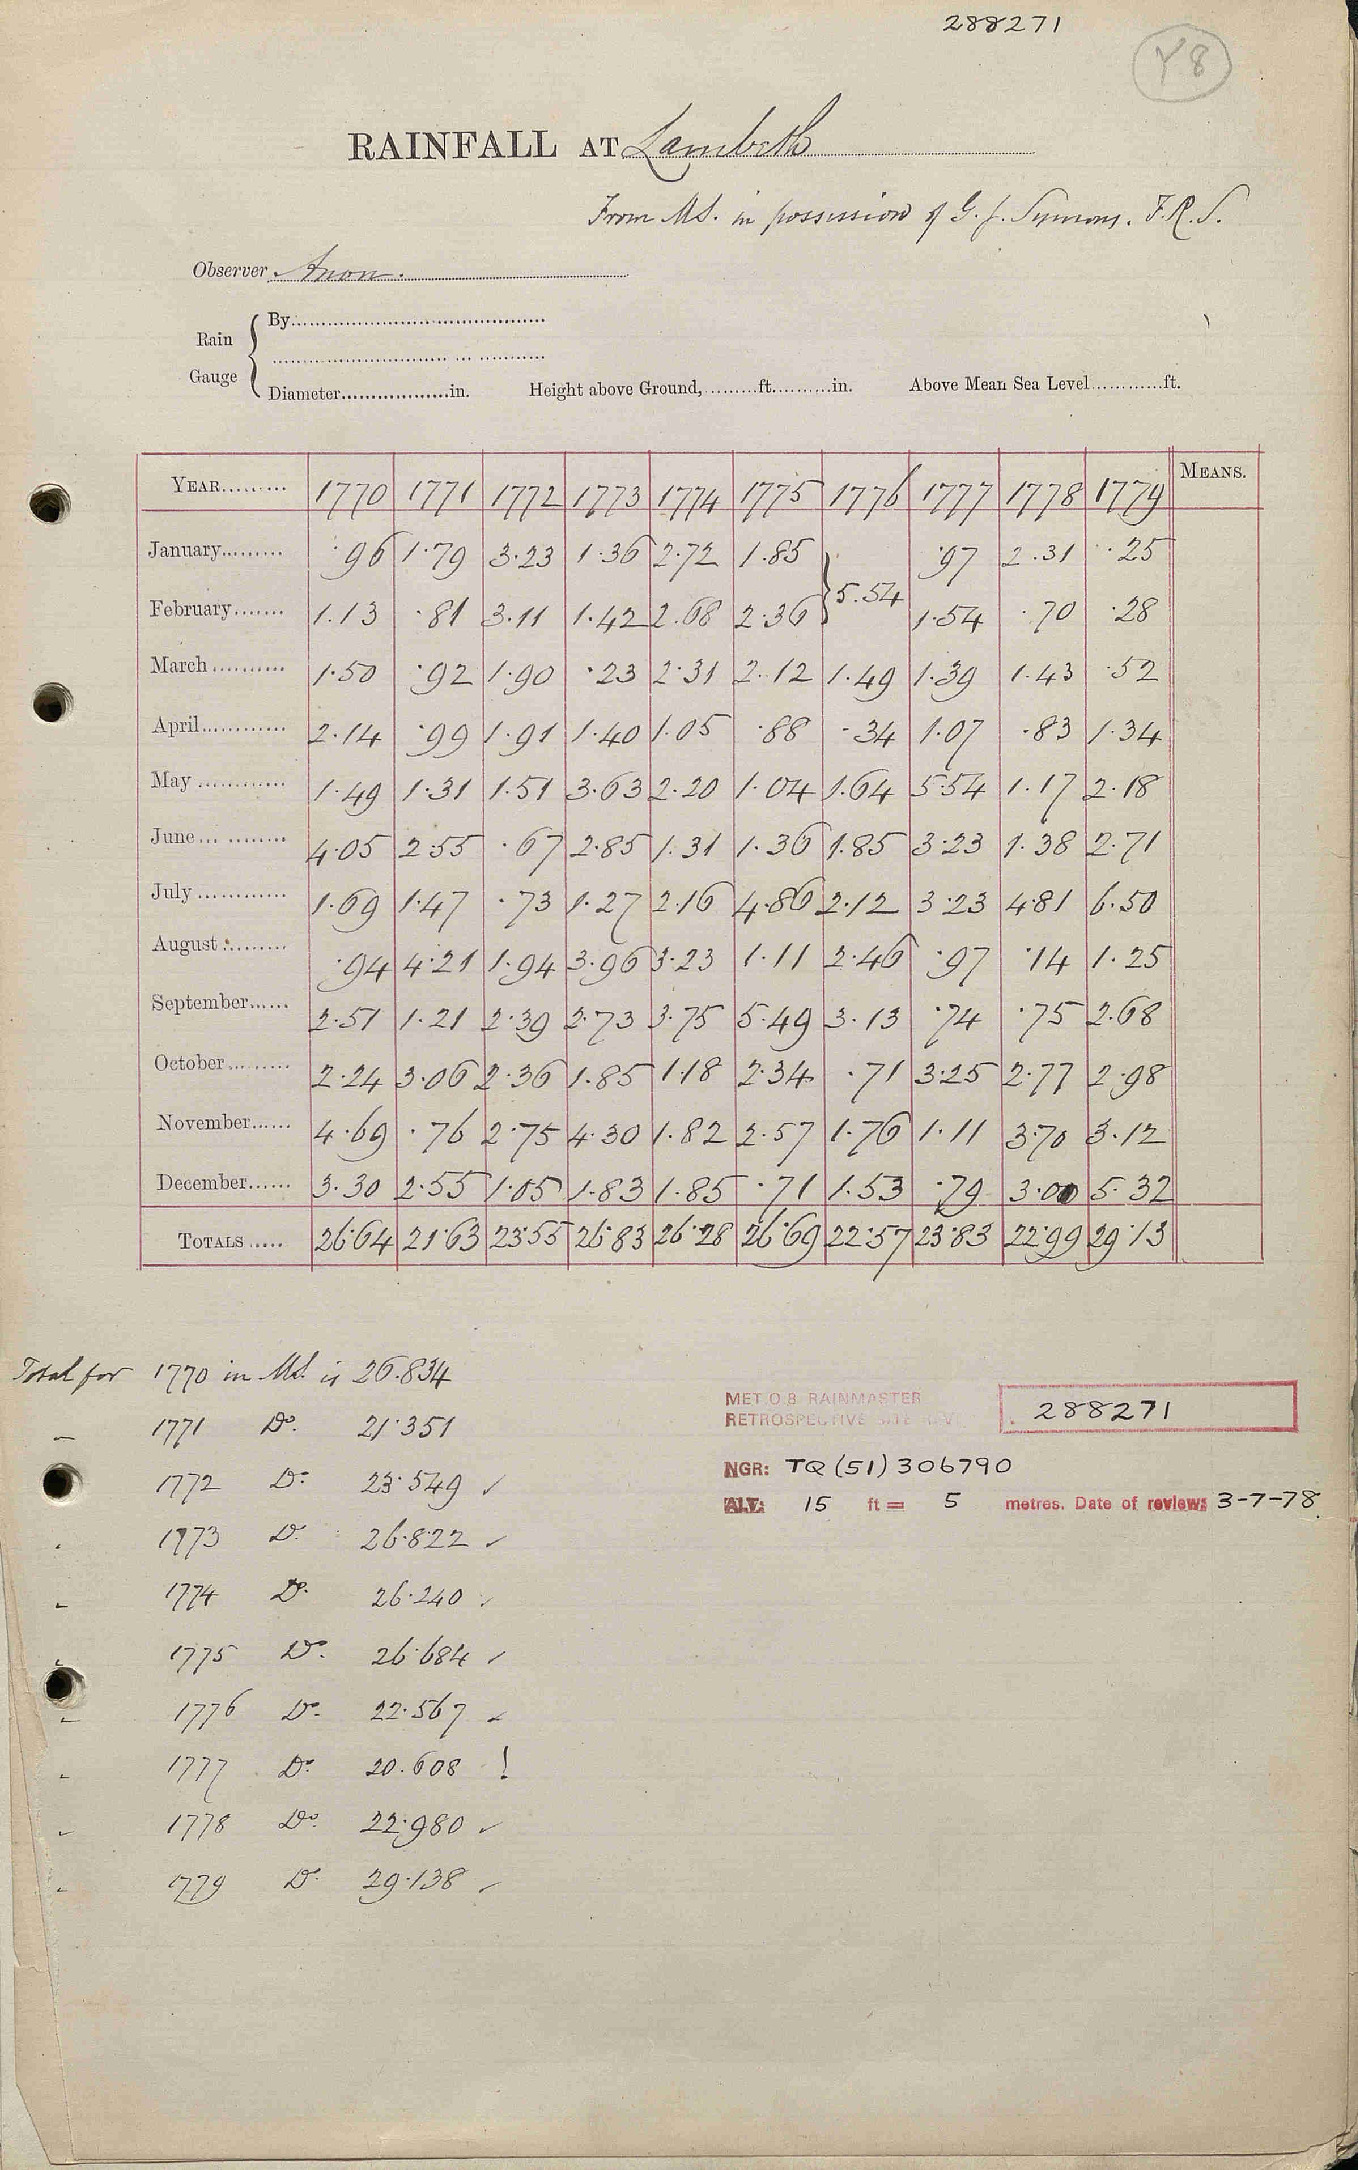 288271
Y8
RAINFALL AT Lambeth
From MS. in possession of G. J. Symons. F.R.S.
Observer Anon.
Rain Gauge { By
Diameter in. Height above Ground, ft. in. Above Mean Sea Level ft.
YEAR 1770 1771 1772 1773 1774 1775 1776 1777 1778 1779 MEANS.
January ·96 1·79 3·23 1·36 2·72 1·85 } 5.54 ·97 2.31 ·25
February 1.13 ·81 3·11 1·42 2.68 2·36 1·54 ·70 ·28
March 1·50 ·92 1·90 ·23 2·31 2·12 1·49 1·39 1·43 ·52
April 2·14 ·99 1·91 1·40 1·05 ·88 ·34 1·07 ·83 1·34
May 1·49 1·31 1·51 3·63 2·20 1·04 1·64 5·54 1·17 2·18
June 4·05 2·55 ·67 2·85 1·31 1·36 1·85 3·23 1·38 2·71
July 1·69 1·47 ·73 1·27 2·16 4·86 2·12 3·23 4·81 6·50
August ·94 4·21 1·94 3·96 3·23 1·11 2·46 ·97 ·14 1·25
September 2·51 1·21 2·39 2·73 3·75 5·49 3·13 ·74 ·75 2·68
October 2·24 3·06 2·36 1·85 1·18 2·34 ·71 3·25 2·77 2·98
November 4·69 ·76 2·75 4·30 1·82 2·57 1·76 1·11 3·70 3·12
December 3·30 2·55 1·05 1·83 1·85 ·71 1·53 ·79 3·00 5·32
TOTALS 26·64 21·63 23·55 26·83 26·28 26·69 22·57 23·83 22·99 29·13
Total for 1770 in MS. is 26.834
1771 Do. 21·351
1772 Do. 23·549 ✓
1773 Do. 26·822 ✓
1774 Do. 26·240 ✓
1775 Do. 26·684 ✓
1776 Do. 22·567 ✓
1777 Do. 20.608 !
1778 Do. 22·980 ✓
1779 Do. 29·138 ✓
MET.O.8 RAINMASTER
RETROSPECTIVE SITE 288271
NGR: TQ (51) 306790
ALT: 15 ft = 5 metres. Date of review: 3-7-78